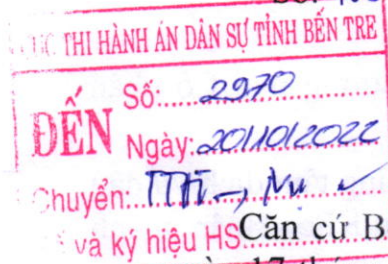 CỤC THI HÀNH ÁN DÂN SỰ TỈNH BẾN TRE
ĐẾN
Số: 2970
Ngày: 20/10/2022
Chuyển:
và ký hiệu HS
Căn cứ B